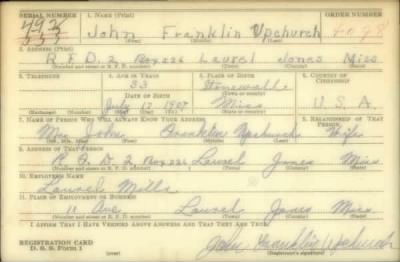 SERIAL NUMBER 1. NAME (Print) ORDER NUMBER
John Franklin Upchurch 4098
(First) (Middle) (Last)
2. ADDRESS (Print)
R.F.D. 2 Box 226 Laurel Jones Miss
(Number and street or R. F. D. number) (Town) (County) (State)
3. TELEPHONE 4. AGE IN YEARS 5. PLACE OF BIRTH 6. COUNTRY OF CITIZENSHIP
33 Stonewall
DATE OF BIRTH (Town or county)
July 17 1907 Miss U.S.A.
(Exchange) (Number) (Mo.) (Day) (Yr.) (State or country)
7. NAME OF PERSON WHO WILL ALWAYS KNOW YOUR ADDRESS 8. RELATIONSHIP OF THAT PERSON
Mrs John Franklin Upchurch Wife
(Mr., Mrs., Miss) (First) (Middle) (Last)
9. ADDRESS OF THAT PERSON
R.F.D. 2 Box 226 Laurel Jones Miss
(Number and street or R. F. D. number) (Town) (County) (State)
10. EMPLOYER'S NAME
Laurel Mills
11. PLACE OF EMPLOYMENT OR BUSINESS
11 Ave Laurel Jones Miss
(Number and street or R. F. D. number) (Town) (County) (State)
I AFFIRM THAT I HAVE VERIFIED ABOVE ANSWERS AND THAT THEY ARE TRUE.
REGISTRATION CARD
D. S. S. Form 1 (over) John Franklin Upchurch
(Registrant's signature)